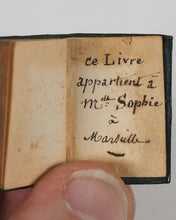 ce Livre
appartient à
Mlle Sophie
à
Marseille